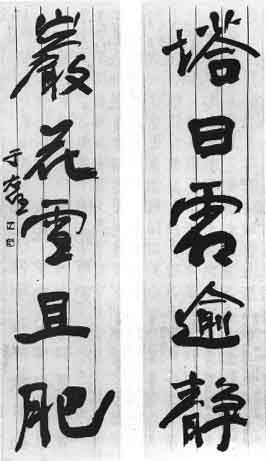 塔日逾静
巖花雪且肥
于右任